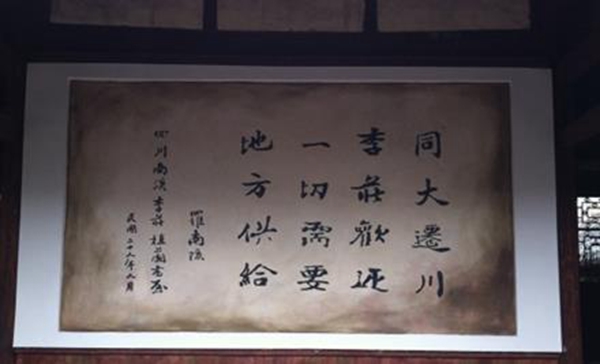 同大遷川
李莊歡迎
一切需要
地方供給
羅南陔
四川南溪李莊植蘭書屋
民國二十年月